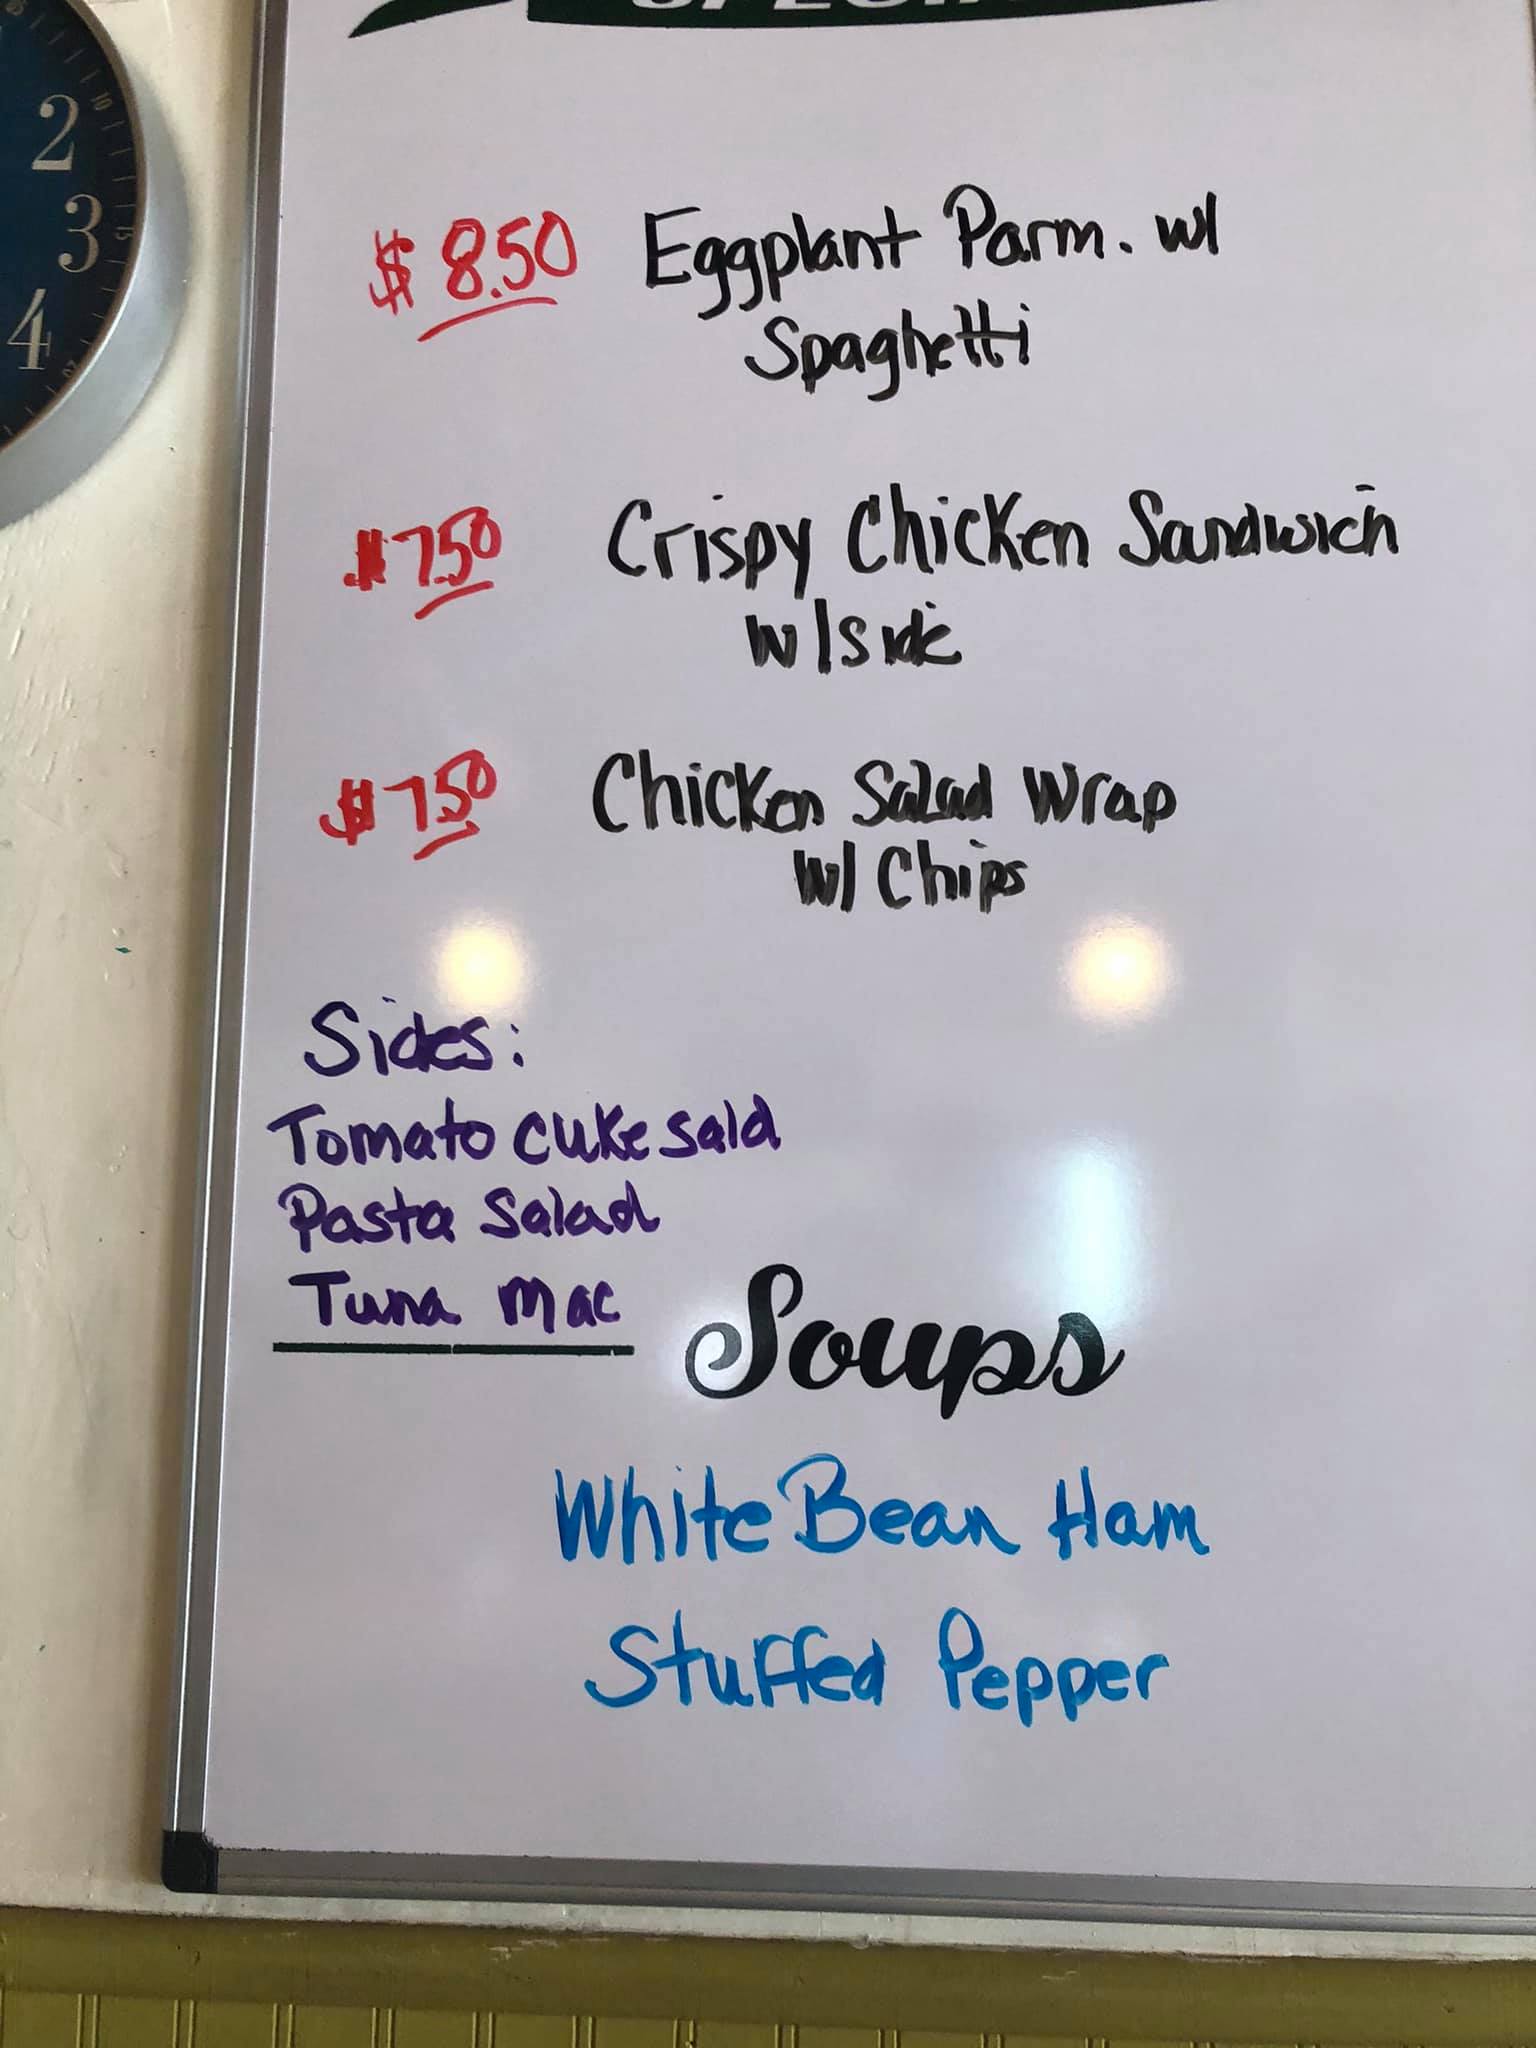 $8.50 Eggplant Parm. w/
Spaghetti
$7.50 Crispy Chicken Sandwich
w/side
$7.50 Chicken Salad Wrap
w/ Chips
Sides:
Tomato cuke sald
Pasta Salad
Tuna mac
Soups
White Bean Ham
Stuffed Pepper
2
3
4
10
15
20